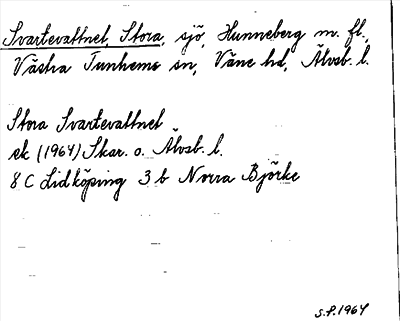 Svartevattnet, Stora, sjö, Hunneberg m. fl.,
Västra Tunhems sn, Väne hd, Älvsb. l.
Stora Svartevattnet
ek (1964) Skar. o. Älvsb. l.
8 C Lidköping 3 b Norra Björke
S.P. 1964